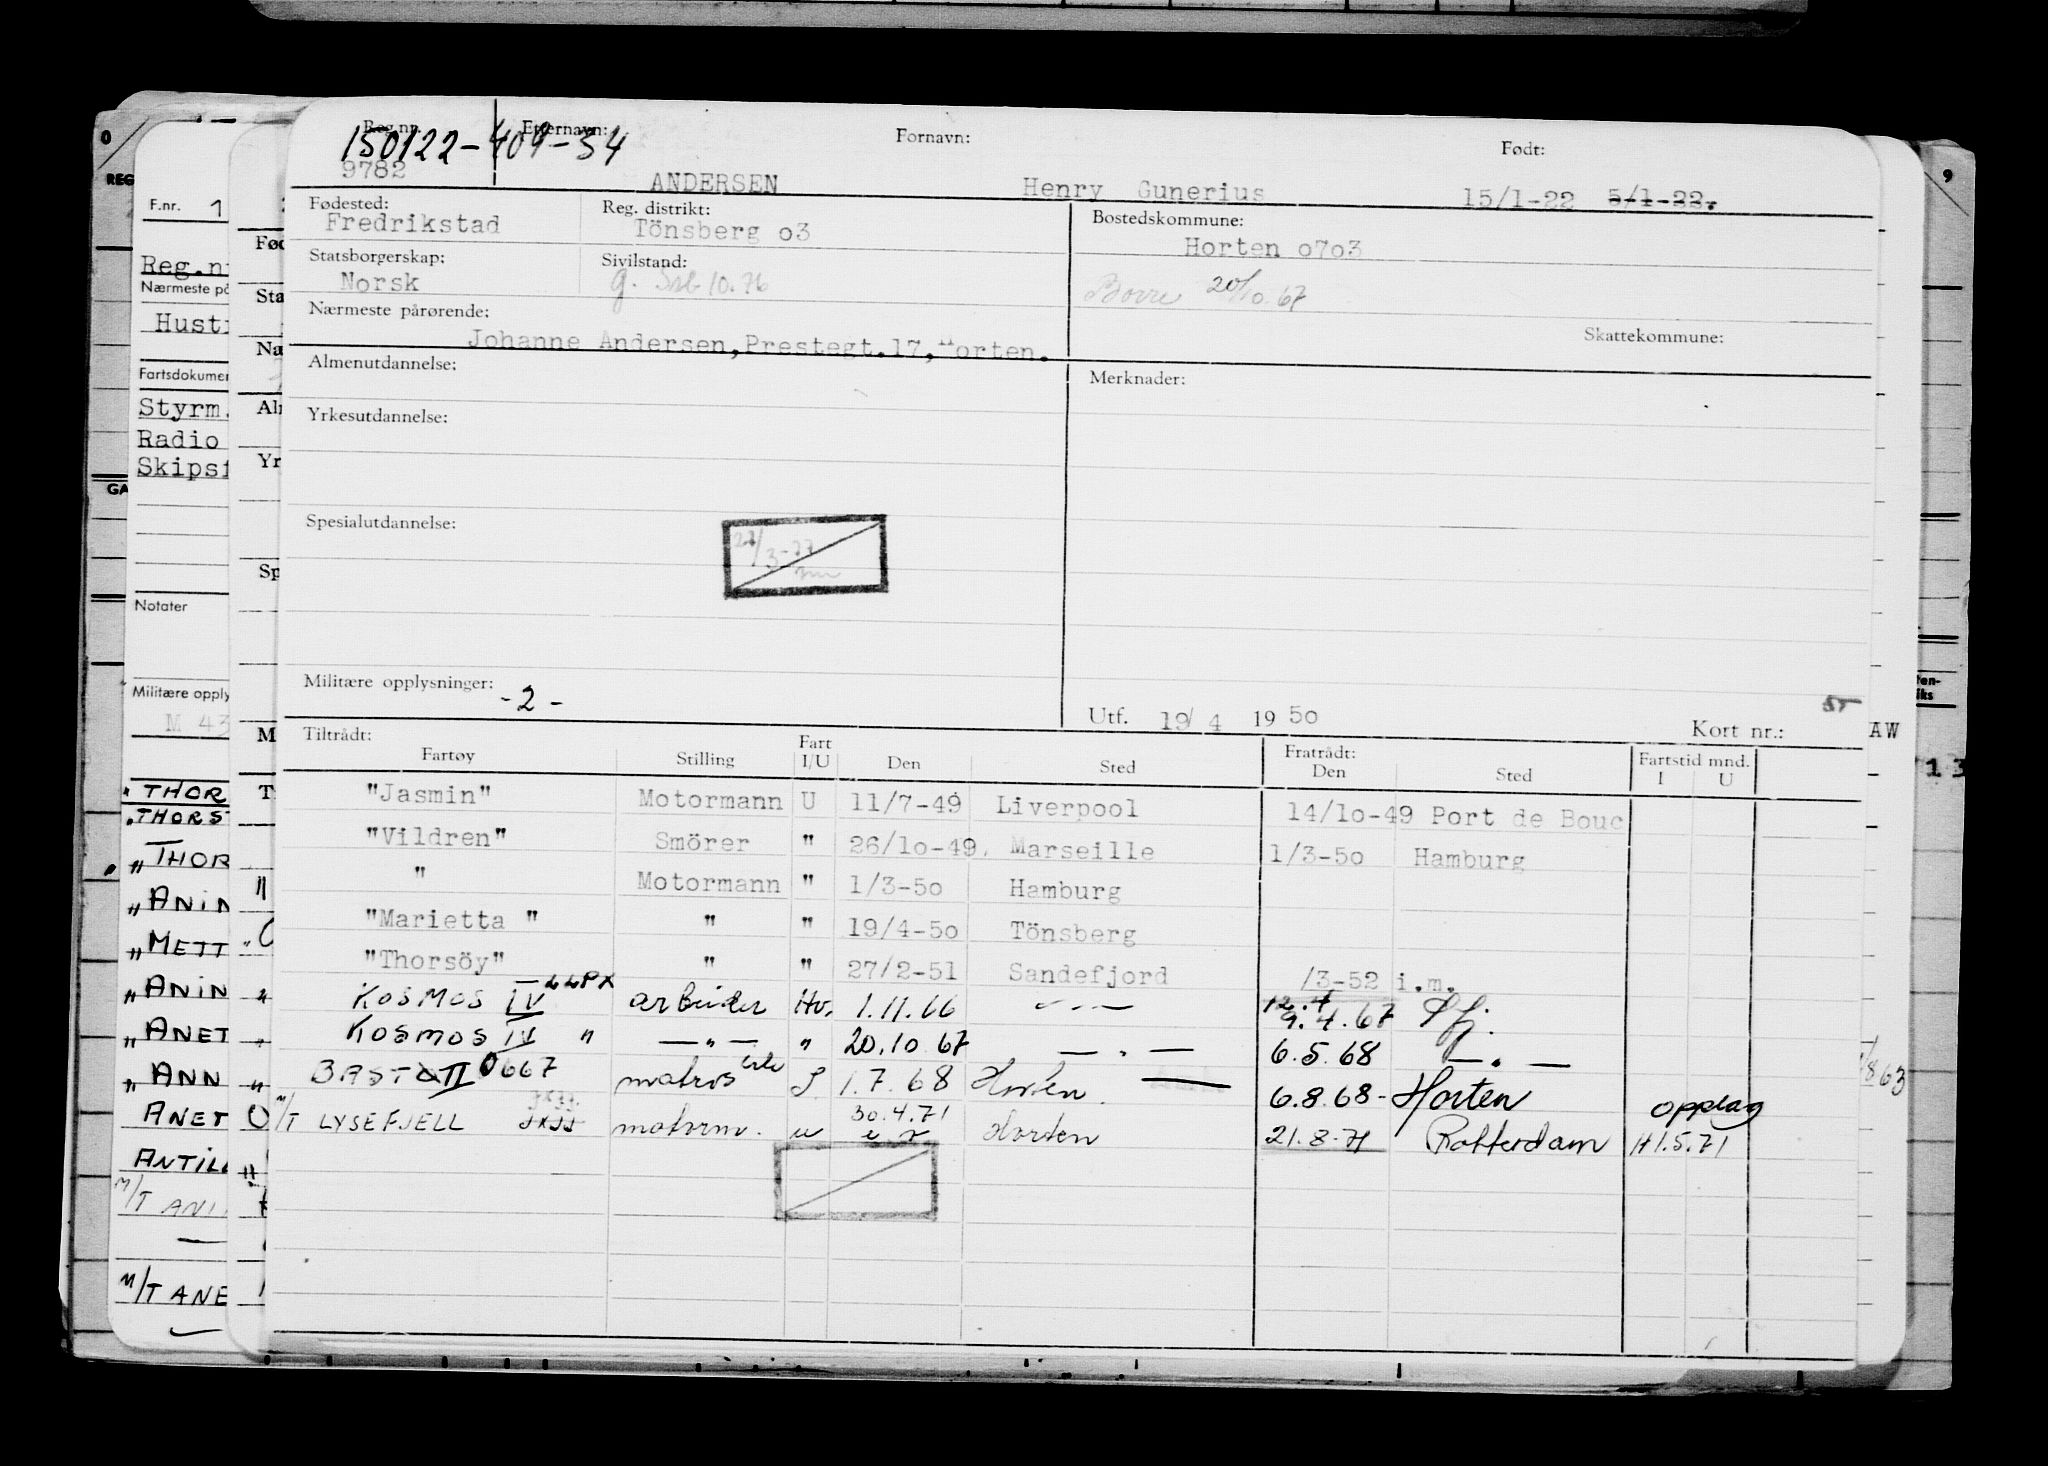 Reg.nr. Etternavn: Fornavn: Født:
150122-409-34
9782 ANDERSEN Henry Gunerius 15/1-22 5/1-22.
Fødested: Reg. distrikt: Bostedskommune:
Fredrikstad Tönsberg o3 Horten o7o3
Statsborgerskap: Sivilstand:
Norsk g. 10.76 Borre 20/10.67
Nærmeste pårørende: Skattekommune:
Johanne Andersen, Prestegt.17, Horten.
Almenutdannelse: Merknader:
Yrkesutdannelse:
Spesialutdannelse:
22/3-77
Militære opplysninger: -2-
Utf. 19/4 1950 Kort nr.:
Tiltrådt: Fratrådt:
Fartøy Stilling Fart I/U Den Sted Den Sted Fartstid mnd. I U
"Jasmin" Motormann U 11/7-49 Liverpool 14/1o-49 Port de Bouc
"Vildren" Smörer " 26/1o-49. Marseille 1/3-5o Hamburg
" Motormann " 1/3-5o Hamburg
"Marietta " " " 19/4-5o Tönsberg
"Thorsöy" " " 27/2-51 Sandefjord /3-52 i.m.
KOSMOS IV LLPX arbeider Hv. 1.11.66 - " - 12.4 9.4.67 Sfj.
KOSMOS IV " - " - " 20.10.67 - " - 6.5.68 - " -
BASTØ II 0667 matros 1.7.68 Horten. 6.8.68- Horten opplag
M/T LYSEFJELL JXJJ motorm. u 30.4.71 Horten 21.8.71 Rotterdam H 1.5.71
F.nr. 1
Reg.n
Nærmeste på
Hust
Fartsdokumen
Styrm.
Radio
Skipsf
Notater
Militære opply
M 43
"THOR
"THORS
"THOR
"ANIN
"METT
"ANIN
"ANET
"ANN
ANET
ANTIL
M/T ANI
M/T ANE
REG
GA
Fød
Sta
Næ
Alr
Yr
Sp
M
T
AW
13
863